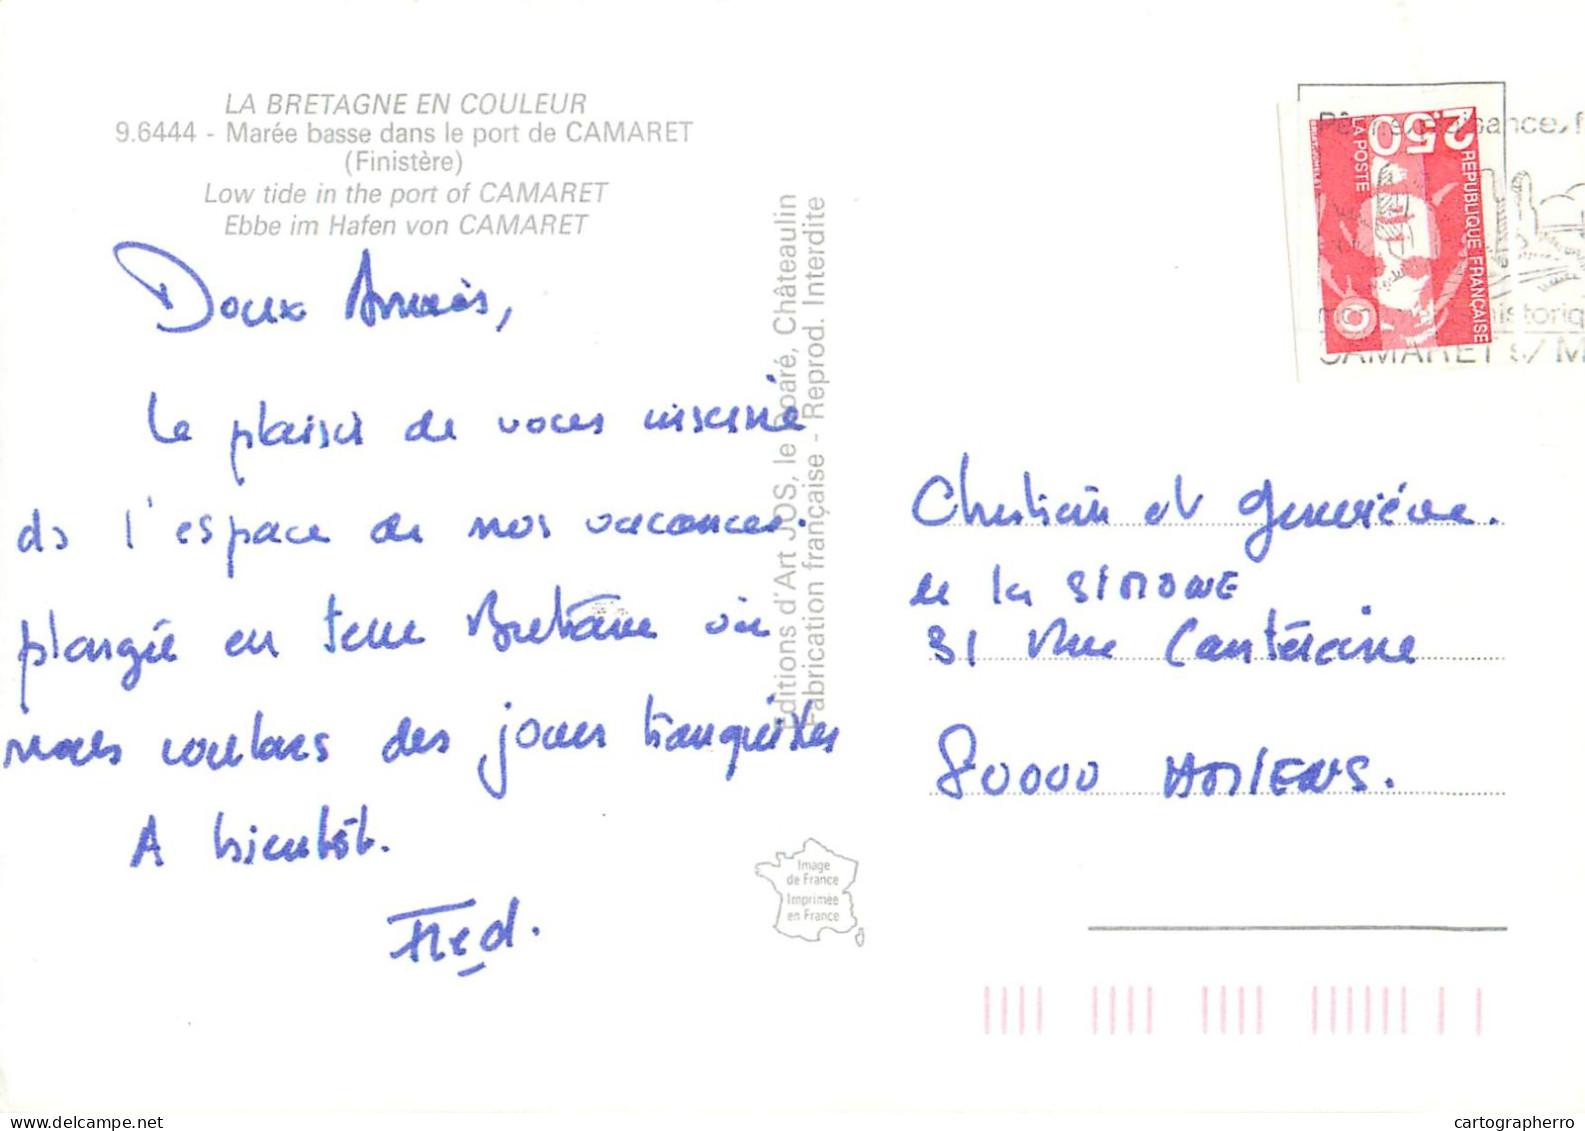 LA BRETAGNE EN COULEUR
9.6444 - Marée basse dans le port de CAMARET
(Finistère)
Low tide in the port of CAMARET
Ebbe im Hafen von CAMARET
Doux
Le plaisir de vous
ds l'espace de nos vacances.
plongée en terre Bretonne où
nous coulons des jours tranquilles
A bientôt.
Fred.
Editions d'Art JOS, le Doaré, Châteaulin
Fabrication française - Reprod. Interdite
Image
de France
Imprimée
en France
2,50
RÉPUBLIQUE FRANÇAISE
LA POSTE
historiq
CAMARET s/ M
Christian et Geneviève.
de la SIMONE
31 rue Canteraine
80000 AMIENS.
cartographerro